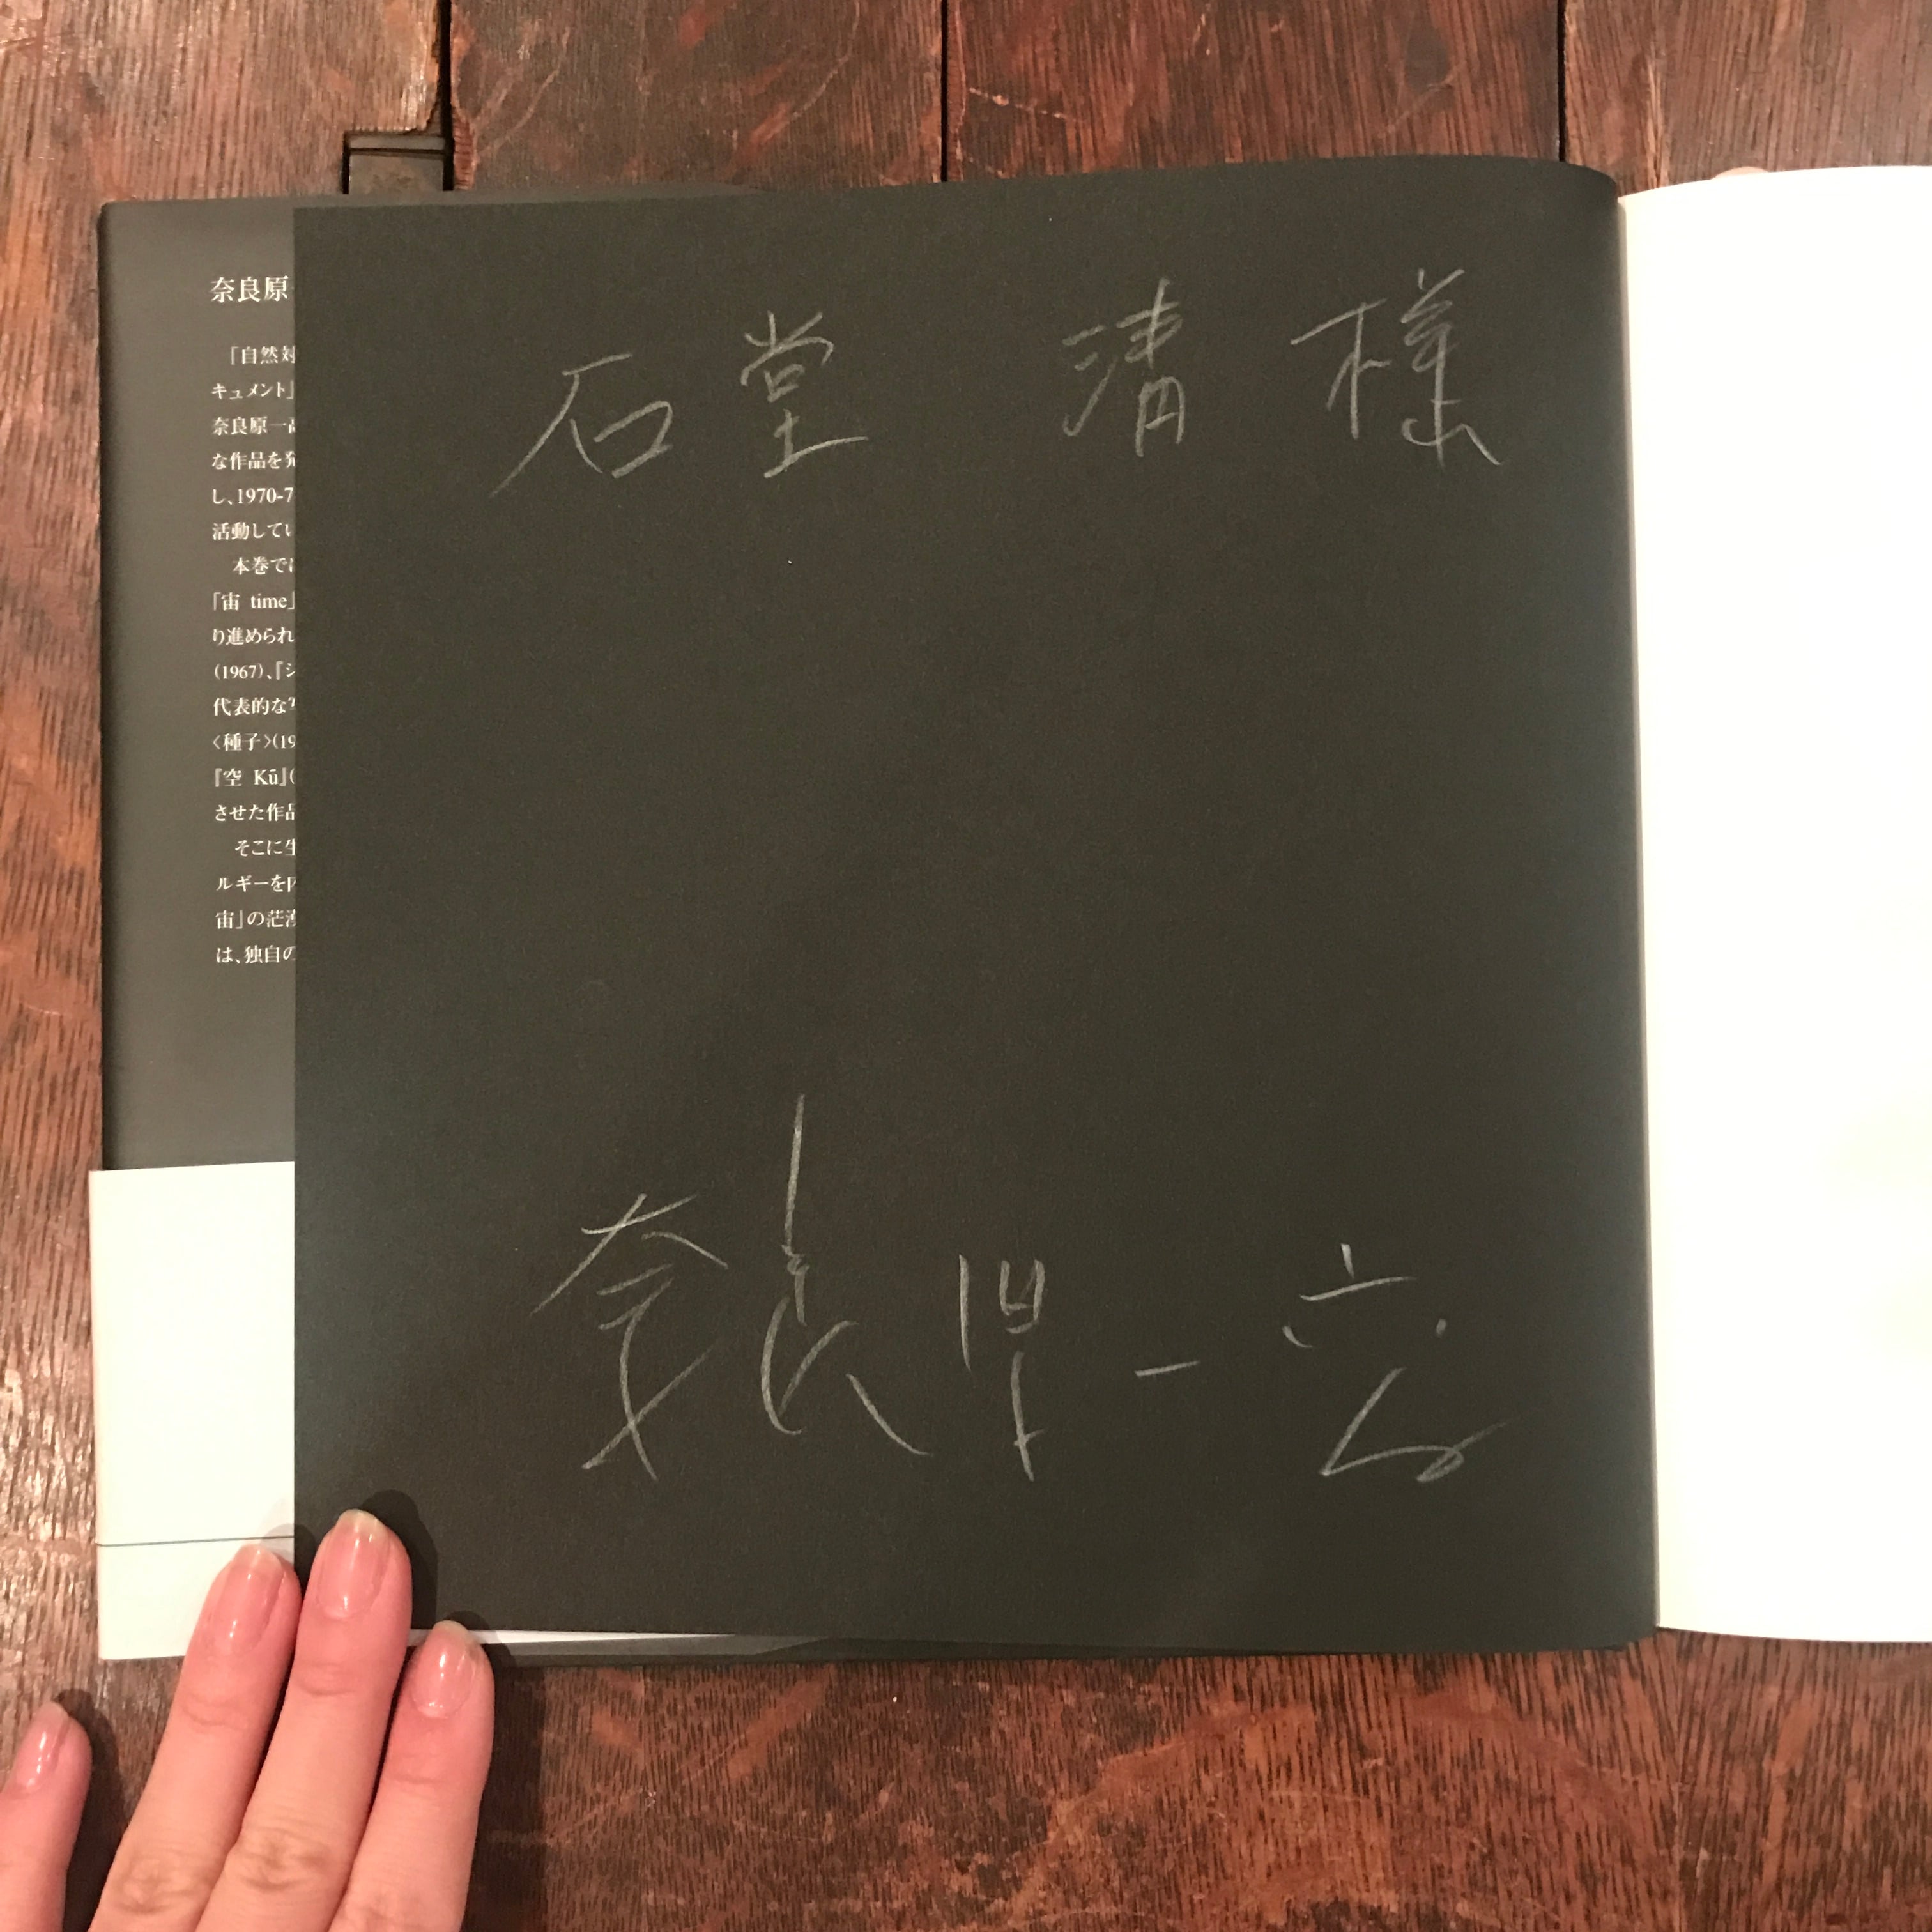 奈良原
「自然対
キュメント』
奈良原一
な作品を発
し、1970-7
活動してい
本巻では
「宙 time」
り進められ
(1967)、『ジ
代表的な写
〈種子〉(19
『空 Kū』(
させた作品
そこに生
ルギーを内
宙」の茫漠
は、独自の
石堂 清 様
奈良原一高